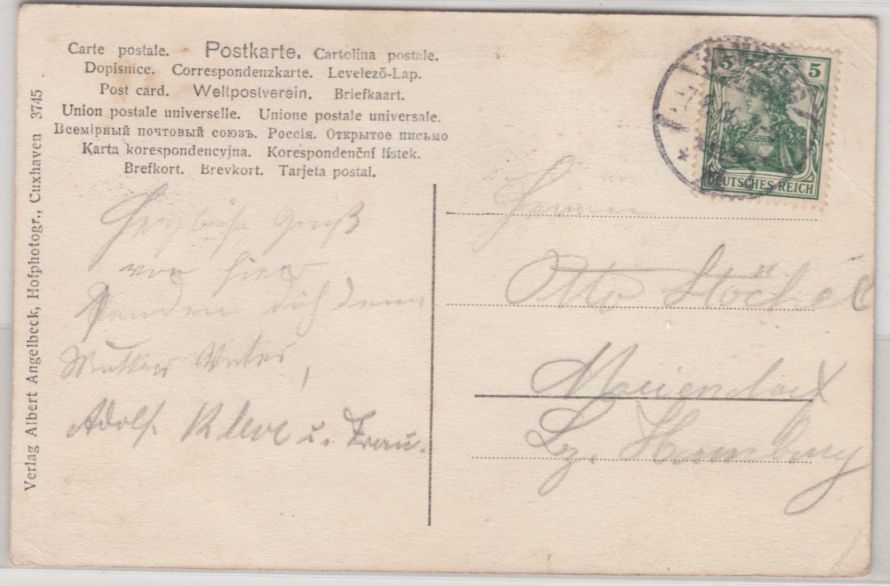 Carte postale. Postkarte. Cartolina postale.
Dopisnice. Correspondenzkarte. Levelező-Lap.
Post card. Weltpostverein. Briefkaart.
Union postale universelle. Unione postale universale.
Всемірный почтовый союзъ. Россія. Открытое письмо
Karta korespondencyjna. Korespondenční lístek.
Brefkort. Brevkort. Tarjeta postal.
Verlag Albert Angelbeck, Hofphotogr., Cuxhaven 3745
5 5
DEUTSCHES REICH
Herzliche Gruß
von hier
senden dir
Adolf. u. Frau.
Herrn
Otto
Meiendorf
Bz. Hamburg